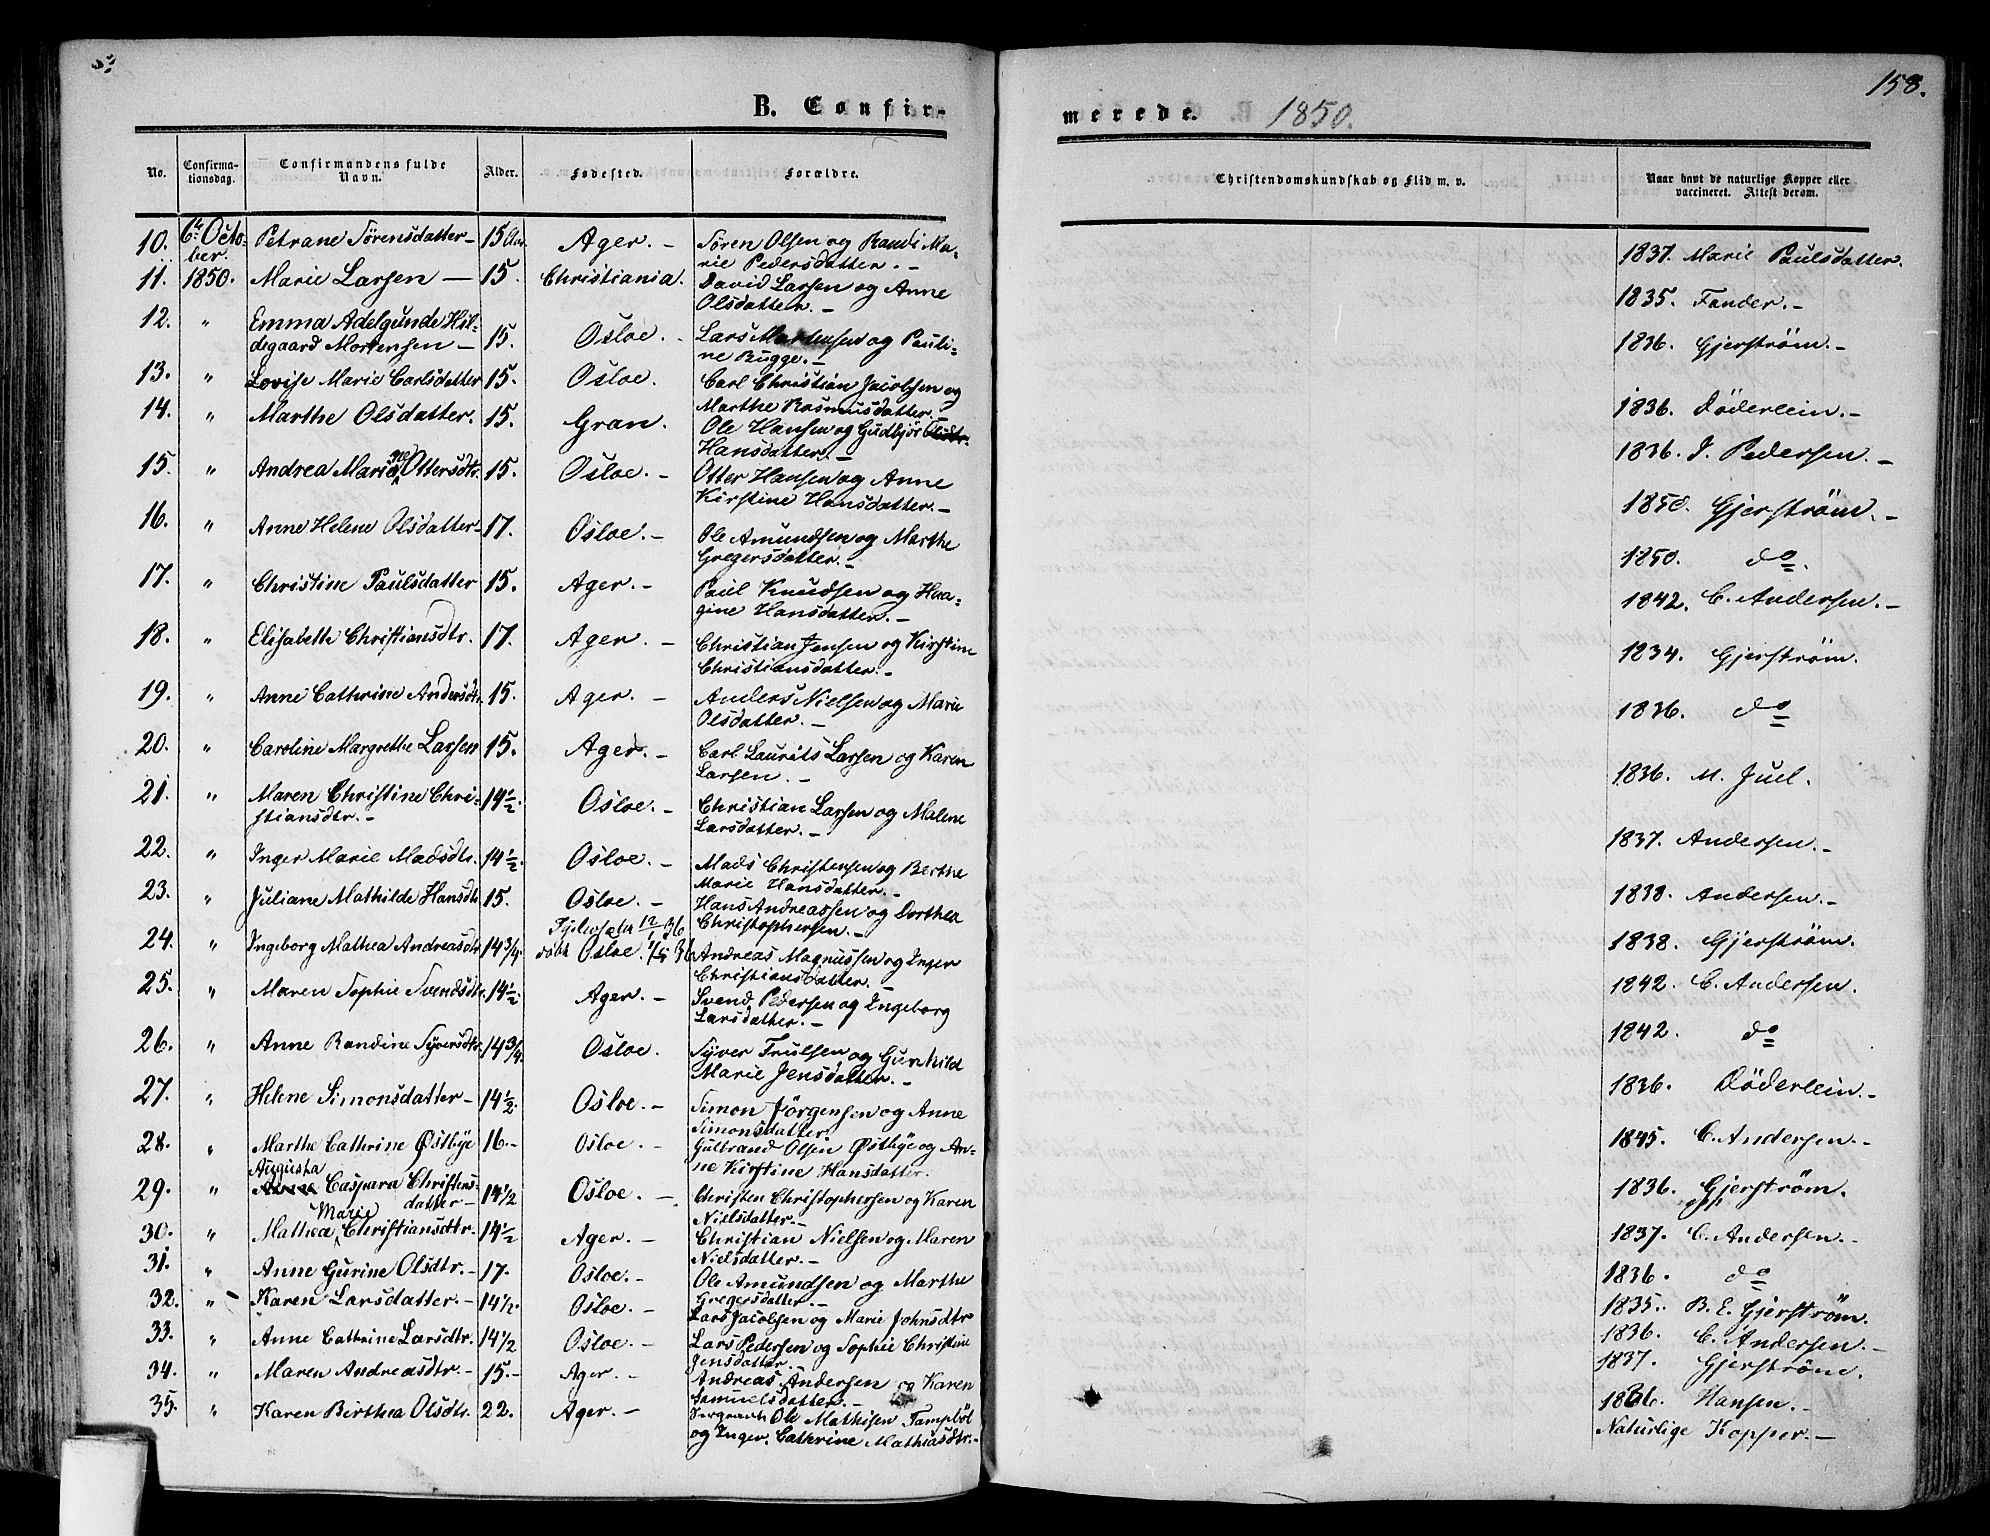 158.
B. Confir-
merede. 1850.
No.
Confirma-
tionsdag.
Confirmandens fulde
Navn.
Alder.
Fødested.
Forældre.
Christendomskundskab og Flid m. v.
Naar havt de naturlige Kopper eller
vaccineret. Attest derom.
10. 6te Octo- Petrane Sörensdatter- 15 Aar. Ager. - Sören Olsen og Randi Ma- 1837. Marie Paulsdatter.
ber. rie Pedersdatter. -
11. 1850. Marie Larsen - 15. Christiania. David Larsen og Anne 1835. Fander. -
Olsdatter. -
12. " Emma Adelgunde Hil- 15. Osloe. - Lars Mortensen og Pauli- 1836. Gjerström. -
degaard Mortensen - ne Bugge. -
13. " Lovise Marie Carlsdatter 15. Osloe. Carl Christian Jacobsen og 1836. Döderlein. -
Marthe Rasmusdatter. -
14. " Marthe Olsdatter. 15. Gran. Ole Hansen og Gudbjör 1836. J. Pedersen. -
Hansdatter. -
15. " Andrea Mariane Ottersdtr. 15. Osloe. - Otter Hansen og Anne 1850. Gjerström. -
Kirstine Hansdatter. -
16. " Anne Helene Olsdatter- 17. Osloe. - Ole Amundsen og Marthe 1850. do.
Gregersdatter. -
17. " Christine Paulsdatter 15. Ager. - Paul Knudsen og Haa- 1842. C. Andersen. -
gine Hansdatter. -
18. " Elisabeth Christiansdtr. 17. Ager. - Christian Jensen og Kirstine 1834. Gjerström.
Christiansdatter. -
19. " Anne Cathrine Andersdtr. 15. Ager. - Anders Nielsen og Marie 1836. do
Olsdatter. -
20. " Caroline Margrethe Larsen 15. Ager. - Carl Laurits Larsen og Karen 1836. M. Juel.
Larsen. -
21. " Maren Christine Chri- 14½. Osloe. - Christian Larsen og Malene 1837. Andersen. -
stiansdtr. - Larsdatter. -
22. " Inger Marie Madsdtr. 14½. Osloe. - Mads Christensen og Berthe 1838. Andersen. -
Marie Hansdatter. -
23. " Juliane Mathilde Hansdtr. 15. Osloe. - Hans Andreassen og Dorthea 1838. Gjerström.
Christophersen. -
24. " Ingeborg Mathea Andreasdtr. 14¾. döbt Osloe. 1/5 36 Andreas Magnussen og Inger 1842. C. Andersen.
Christiansdatter. -
25. " Maren Sophie Svendsdtr. 14½. Ager. - Svend Pedersen og Ingeborg 1842. do
Larsdatter. -
26. " Anne Randine Syversdtr. 14¾. Osloe. Syver Trulsen og Gunhild 1836. Döderlein. -
Marie Jensdatter. -
27. " Helene Simonsdatter - 14½. Osloe. - Simon Jörgensen og Anne 1845. C. Andersen. -
Simonsdatter.
28. " Marthe Cathrine Østbye 16. - Osloe. - Gulbrand Olsen Østbye og An- 1836. Gjerström.
ne Kirstine Hansdatter.
29. " Augusta Caspara Christens- 14½ Osloe. - Christen Christophersen og Karen 1837. C. Andersen. -
datter - Nielsdatter. -
30. " Mathea Marie Christiansdtr. 14½ Ager. - Christian Nielsen og Maren 1836. do
Nielsdatter. -
31. " Anne Gurine Olsdtr. - 17. Osloe. - Ole Amundsen og Marthe 1835. B. E. Gjerström.
Gregersdatter. -
32. " Karen Larsdatter. - 14½. Osloe. - Lars Jacobsen og Marie Johnsdtr 1836. C. Andersen. -
33. " Anne Cathrine Larsdtr. 14½ Osloe. - Lars Pedersen og Sophie Christine 1837. Gjerström.
Jensdatter. -
34. " Maren Andreasdtr. - 15. - Ager. - Andreas Andersen og Karen 1836. Hansen. -
Samuelsdatter. -
35. " Karen Birthea Olsdtr. 22. Ager. - Sergeant Ole Mathisen Tampböl Naturlige Kopper. -
og Inger Cathrine Mathiasdtr. -